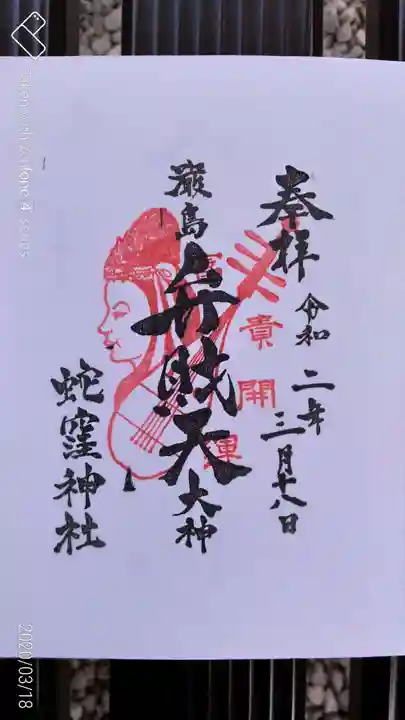 奉拝
令和二年三月十八日
厳島
弁財天
大神
開運
蛇窪神社
Taken with Zenfone 4 series
2020/03/18